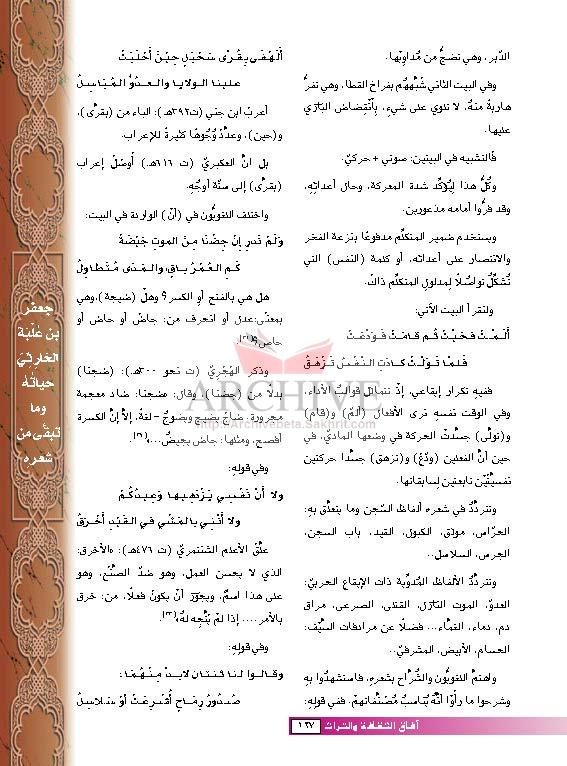 الدَّبر، وهي تضجُّ من مُداوِيّها.
وفي البيت الثاني شبَّههُم بفراخ القطا، وهي تفرُّ
هاربةً منهُ، لا تلوي على شيءٍ، بانقِضاض البازي
عليها.
فالتشبيه في البيتين: صوتي + حركيّ.
وكُلُّ هذا ليُؤكِّد شدة المعركة، وحال أعدائِهِ،
وقد فرُّوا أمامه مذعورين.
ويستخدم ضمير المتكلِّم مدفوعًا بنزعة الفخر
والانتصار على أعدائه، أو كلمة (النفس) التي
تُشكِّلُ تواصُلًا لمدلولِ المتكلِّم ذاكَ.
ولنقرأ البيت الآتي:
ألَمَّتْ فحَيَّتْ ثُم قامَتْ فوَدَّعَتْ
فلمَّا تولَّتْ كادَتِ النَّفْسُ تَزْهَقُ
ففيهِ تكرار إيقاعي، إذْ تتماثل قوالبُ الأداء،
وفي الوقت نفسهِ نرى الأفعال (ألَمَّ) و(قام)
و(تولى) جسَّدتْ الحركة في وضعها الماديِّ، في
حين أنَّ الفعلين (ودَّعَ) و(تزهق) جسَّدا حركتين
نفسيَّتَين تابعتين لِسابقاتها.
وتتردَّدُ في شعره ألفاظ السَّجن وما يتعلَّق بهِ:
الحرَّاس، موثق، الكبول، القيد، باب السجن،
الجرس، السلاسل..
وتتردَّدُ الألفاظ المُدوِّية ذات الإيقاع الحربيّ:
العدوّ، الموت النازل، القتلى، الصرعى، مراق
دم، دماء، الغمَّاء... فضلًا عن مرادفات السَّيْف:
الحسام، الأبيض، المشرفيّ..
واهتمَّ اللغويُّون والشُّراح بشعرهِ، فاستشهدُوا بهِ
وشرحوا ما رأَوْا أنَّهُ يُناسبُ مُصنَّفاتهم، ففي قولِهِ:
ألَهْفَى بِقُرَّى سَحْبَلٍ حِيْنَ أَحْلَبَتْ
علينا الولايا والعَدُوُّ المُبَاسِلُ
أعربَ ابن جني (ت٣٩٢هـ): الباء من (بقرَّى)،
و(حين)، وعدَّدَ وُجُوهًا كثيرةً للإعراب.
بل انَّ العكبريّ (ت ٦١٦هـ) أوصَلَ إعراب
(بقرَّى) إلى ستَّة أوجُهٍ.
واختلف اللغويُّون في (أنْ) الواردة في البيت:
ولَمْ نَدرِ إنْ جِضْنا مِنَ الموتِ جَيْضَةً
كَمِ العُمْرُ باقٍ، والمَدَى مُتَطاوِلُ
هل هي بالفتح أو الكسر؟ وهل (ضيجة)،وهي
بمعنى:عدل أو انحرف من: جاضَ أو حاضَ أو
وذكر الهَجَرِيّ (ت نحو ٣٠٠هـ): (ضجنا)
بدلًا من (جضنا)، وقال: ضجنا: ضاد معجمة
مجرورة، ضاجَ يضيج ويضوج - لغةٌ، إلاَّ إنَّ الكسرة
أفصح، ومثلها: جاض يجيضُ...،
وفي قولهِ:
ولا أنَّ نَفْسِي يَزْدَهِيها وَعِيدُكُمْ
ولا أنَّنِي بالمَشْيِ في القَيْدِ أَخْرَقُ
علَّق الأعلم الشنتمريّ (ت ٤٧٦هـ): «الأخرق:
الذي لا يحسن العمل، وهو ضدّ الصَّنَع، وهو
على هذا اسمٌ، ويجوز أنْ يكونَ فعلًا، من: خرق
بالأمر.... إذا لمْ يتَّجِه لهُ»
وفي قولهِ:
وقالوا لنا ثنتان لابدَّ مِنْهُما:
صُدُورُ رِماحٍ أُشْرِعَتْ أوْ سَلاسِلُ
جعفر
بن عُلْبَة
الحَارثيّ
حياتُه
وما
تبقَّى من
شعره
ARCHIVE
http://Archivebeta.Sakhrit.com
آفاق الثقافة والتراث ١٢٧